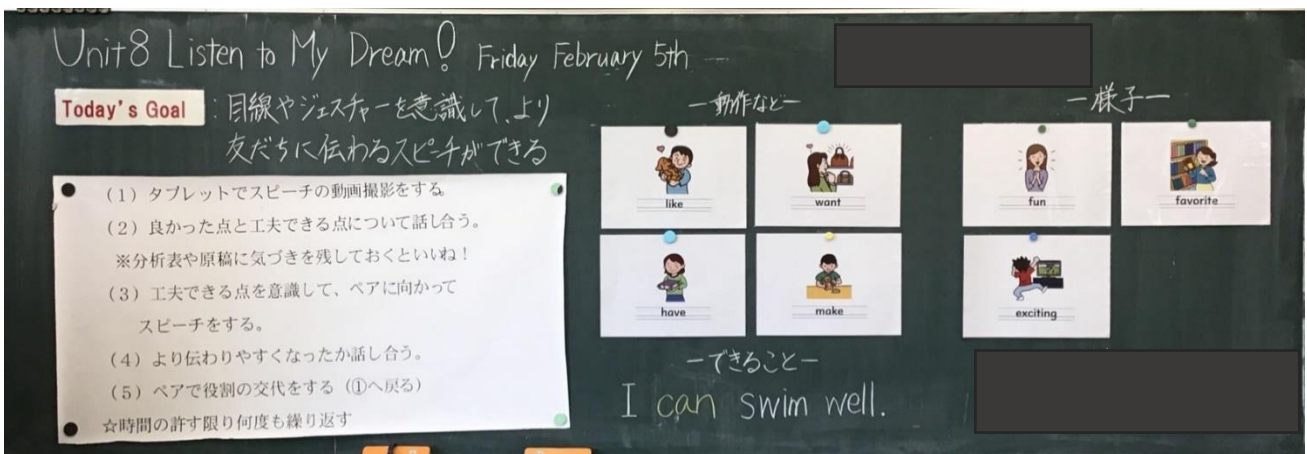 Unit8 Listen to My Dream! Friday February 5th
Today's Goal : 目線やジェスチャーを意識して、より
友だちに伝わるスピーチができる
(1) タブレットでスピーチの動画撮影をする。
(2) 良かった点と工夫できる点について話し合う。
※分析表や原稿に気づきを残しておくといいね!
(3) 工夫できる点を意識して、ペアに向かって
スピーチをする。
(4) より伝わりやすくなったか話し合う。
(5) ペアで役割の交代をする (①へ戻る)
☆時間の許す限り何度も繰り返す
ー動作などー
like
want
have
make
ーできることー
I can swim well.
ー様子ー
fun
favorite
exciting